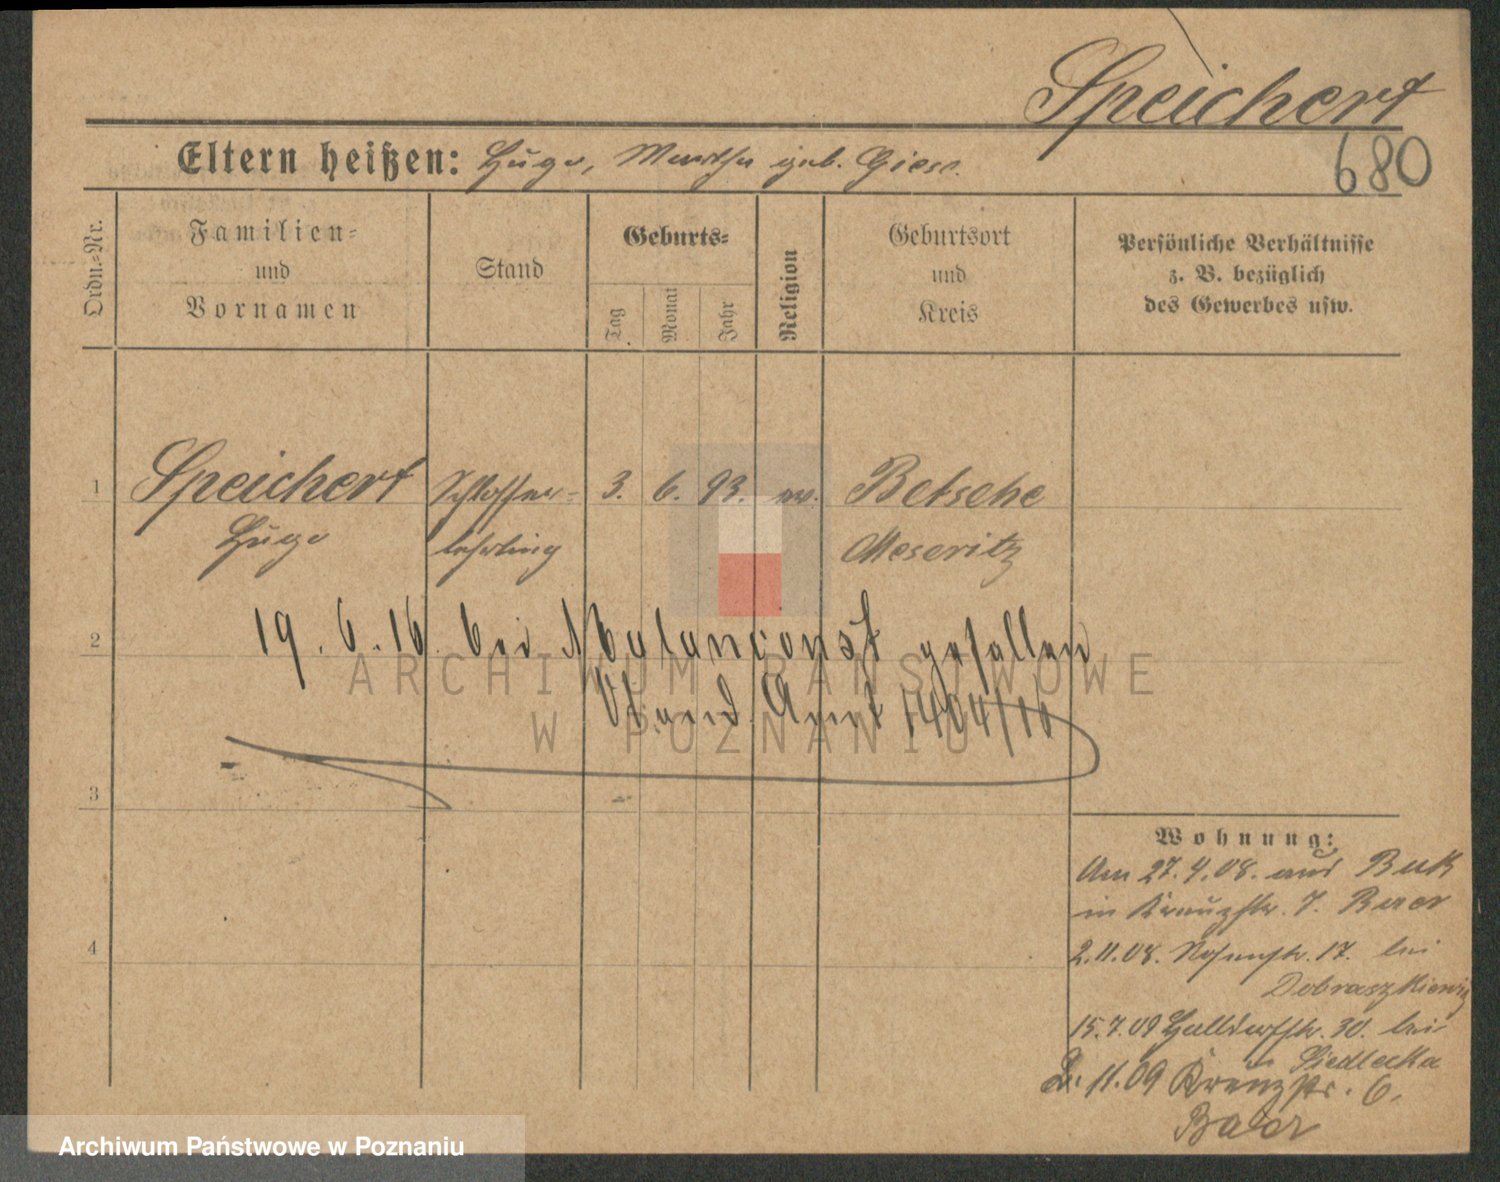 Speichert
680
Eltern heißen: Hugo, Martha geb. Giese.
Ordn.-Nr.
Familien-
und
Vornamen
Stand
Geburts-
Tag
Monat
Jahr
Religion
Geburtsort
und
Kreis
Persönliche Verhältnisse
z. B. bezüglich
des Gewerbes usw.
1 Speichert Schlosser- 3. 6. 93. ev. Betsche
Hugo lehrling Meseritz
19. 6. 16 bei gefallen
2
ARCHIWUM PAŃSTWOWE
Stand. Amt 1404/16
W POZNANIU
3
Wohnung:
Am 27.4.08. aus Buk
in Kreuzstr. 7. Baer
2.11.08. Rosenstr. 17. bei
4
Dobraszkiewicz
15.7.09 Halldorfstr. 30. bei
Siedlecka
2. 11. 09 Kreuzstr. 6.
Baer
Archiwum Państwowe w Poznaniu